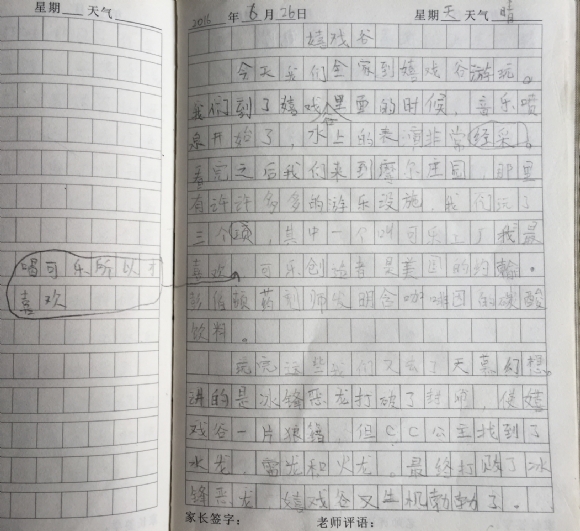 星期 天气
2016 年 6 月 26 日 星期 天 天气 晴
嬉戏谷
今天我们全家到嬉戏谷游玩。
我们到了嬉戏谷里面的时候，音乐喷
泉开始了，水上的表演非常经采。
看完之后我们来到摩尔庄园，那里
有许许多多的游乐设施，我们玩了
三个项，其中一个叫可乐工厂我最
喜欢。可乐创造者是美国的约翰。
喝可乐所以才
喜欢
彭伯顿药剂师发明含咖啡因的碳酸
饮料。
玩完这些我们又去了天幕幻想。
讲的是冰锋恶龙打破了封印，使嬉
戏谷一片狼藉，但CC公主找到了
水龙，雷龙和火龙，最终打败了冰
锋恶龙，嬉戏谷又生机勃勃了。
家长签字： 老师评语：